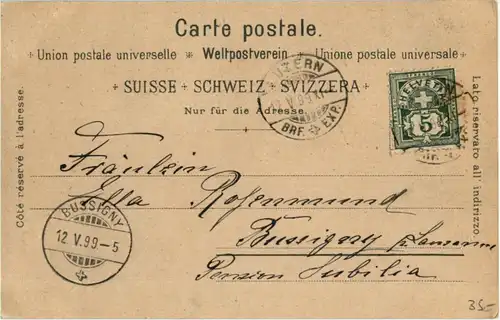 Carte postale.
Union postale universelle Weltpostverein Unione postale universale
SUISSE SCHWEIZ SVIZZERA
Nur für die Adresse.
Côté réservé à l'adresse.
Lato riservato all' indirizzo.
LUZERN
12.V.99
BRF. EXP.
HELVETIA
FRANCO
5
Fräulein
Ella Rosenmund
Bussigny p. Lausanne
Pension Jubilia
BUSSIGNY
12.V.99-5
35.-